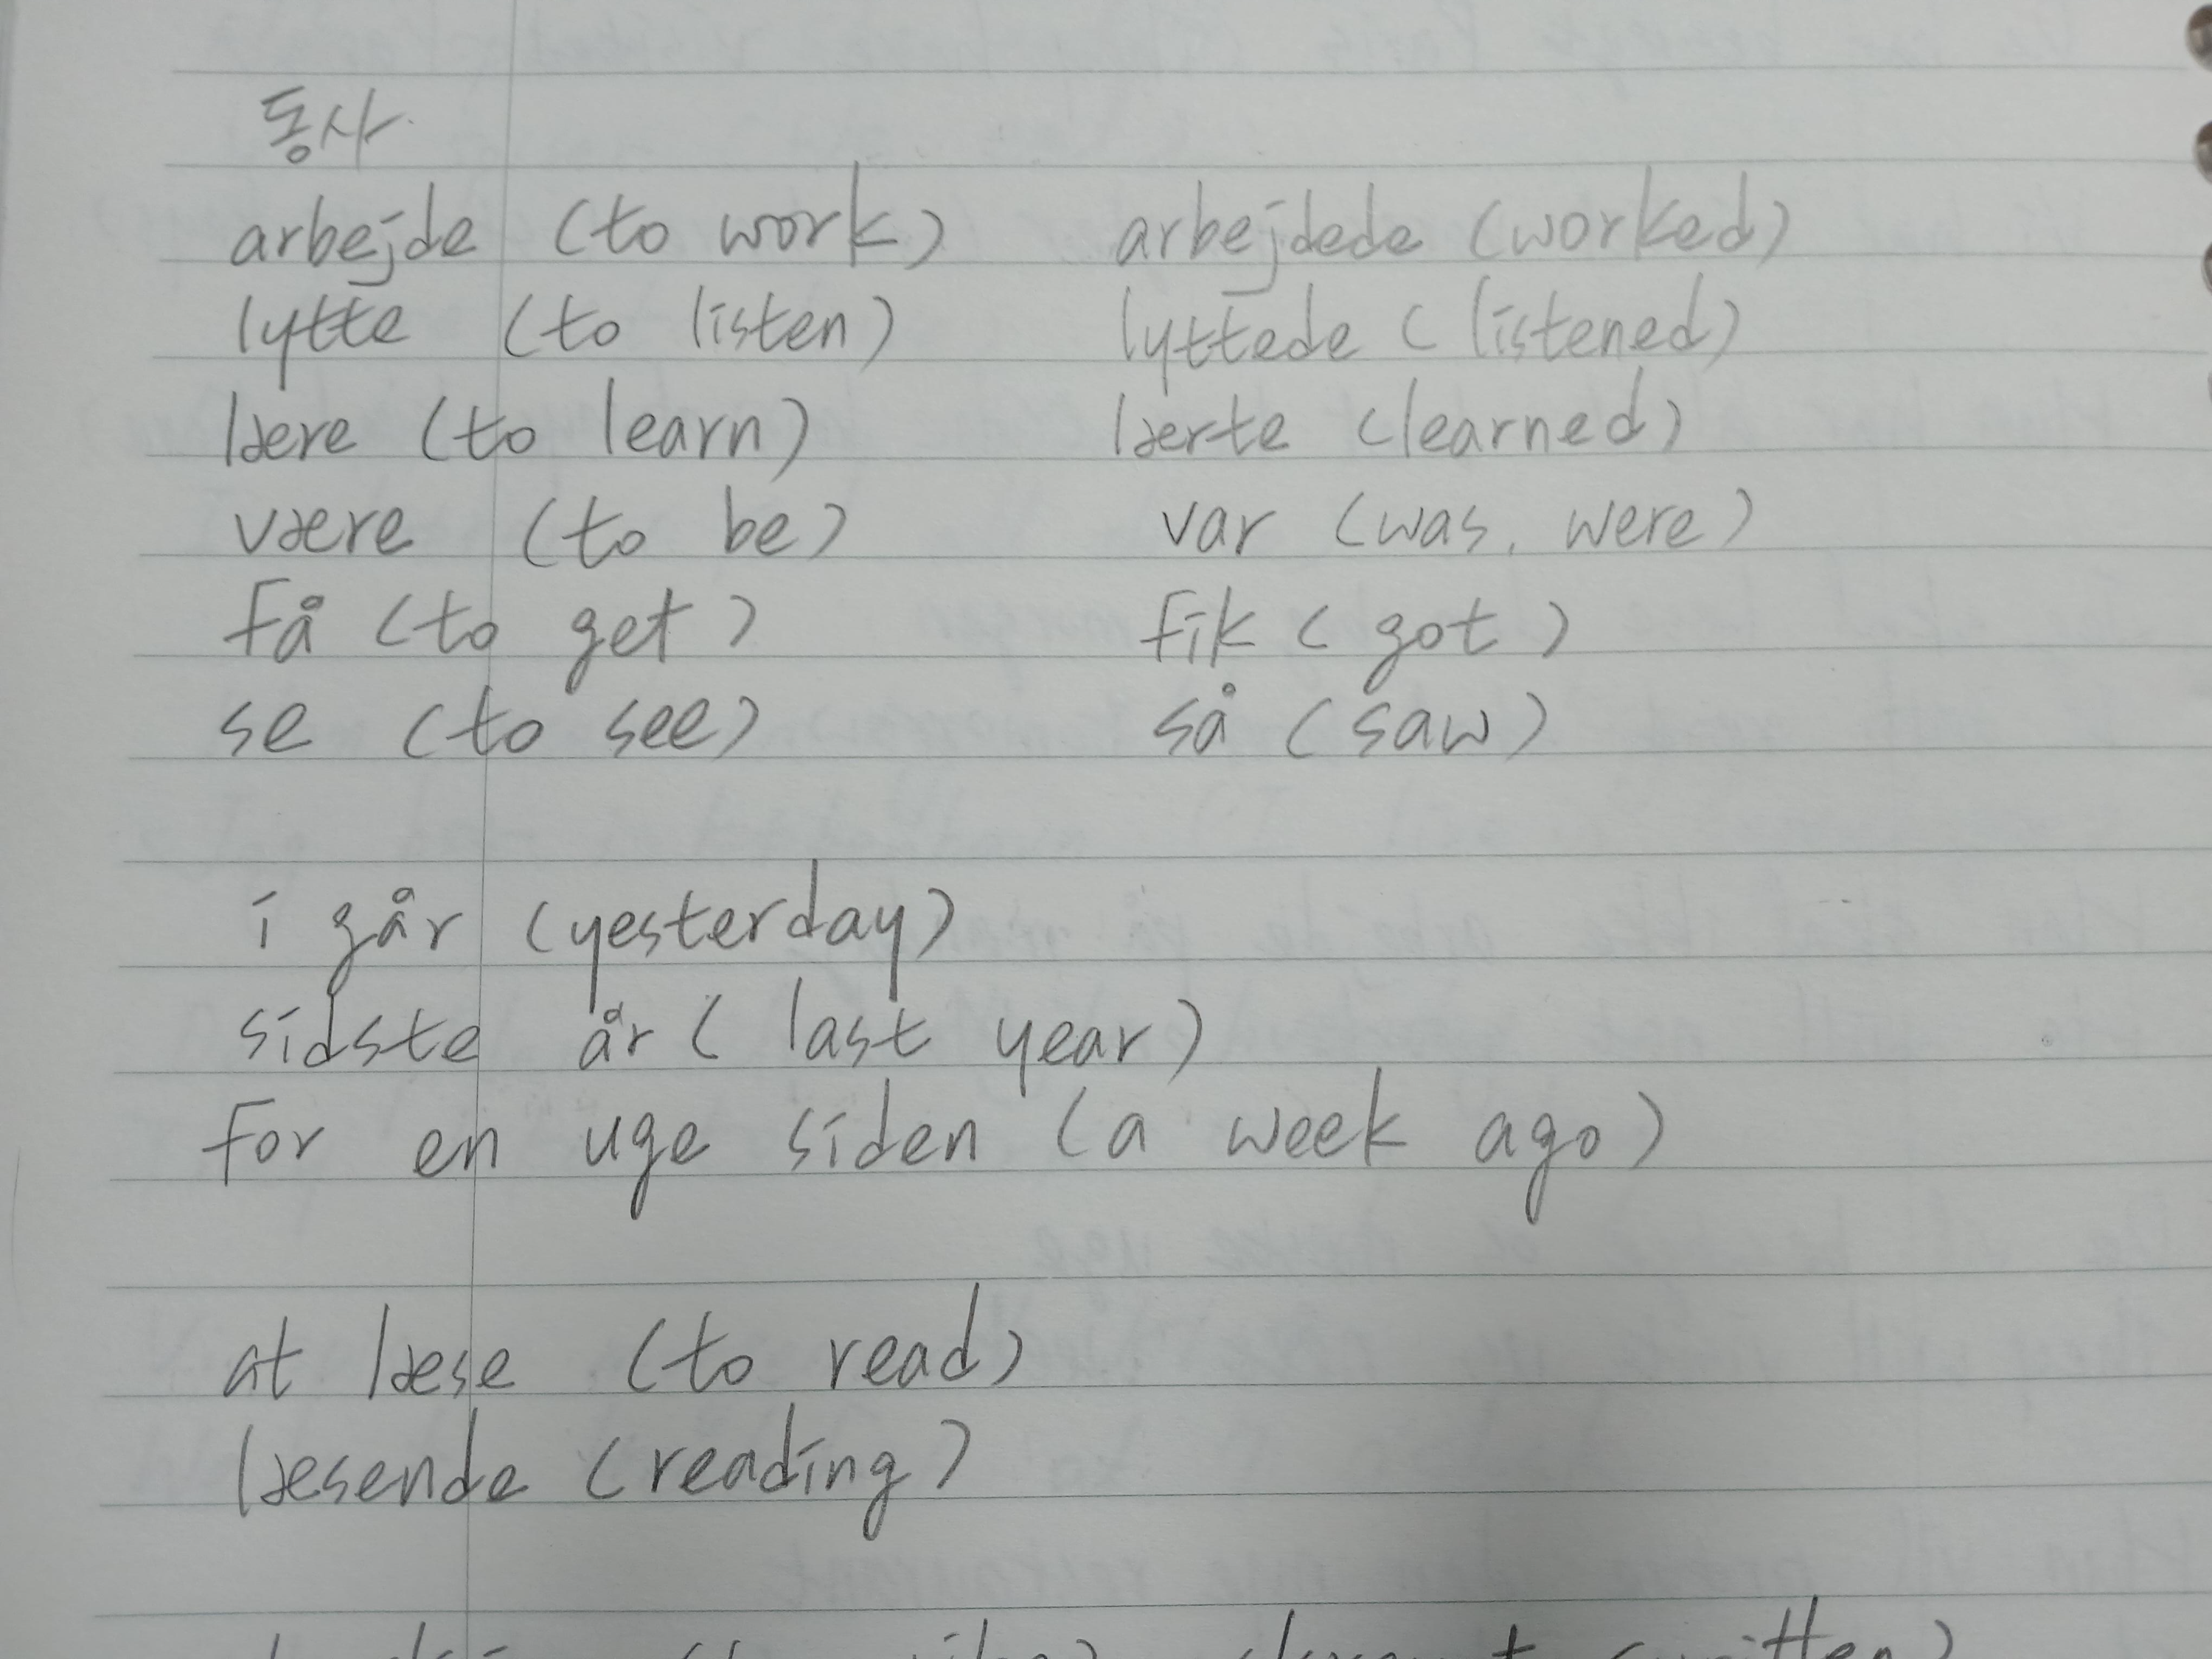 동사
arbejde (to work) arbejdede (worked)
lytte (to listen) lyttede (listened)
lære (to learn) lærte (learned)
være (to be) var (was, were)
få (to get) fik (got)
se (to see) så (saw)
i går (yesterday)
sidste år (last year)
for en uge siden (a week ago)
at læse (to read)
læsende (reading)
(written)